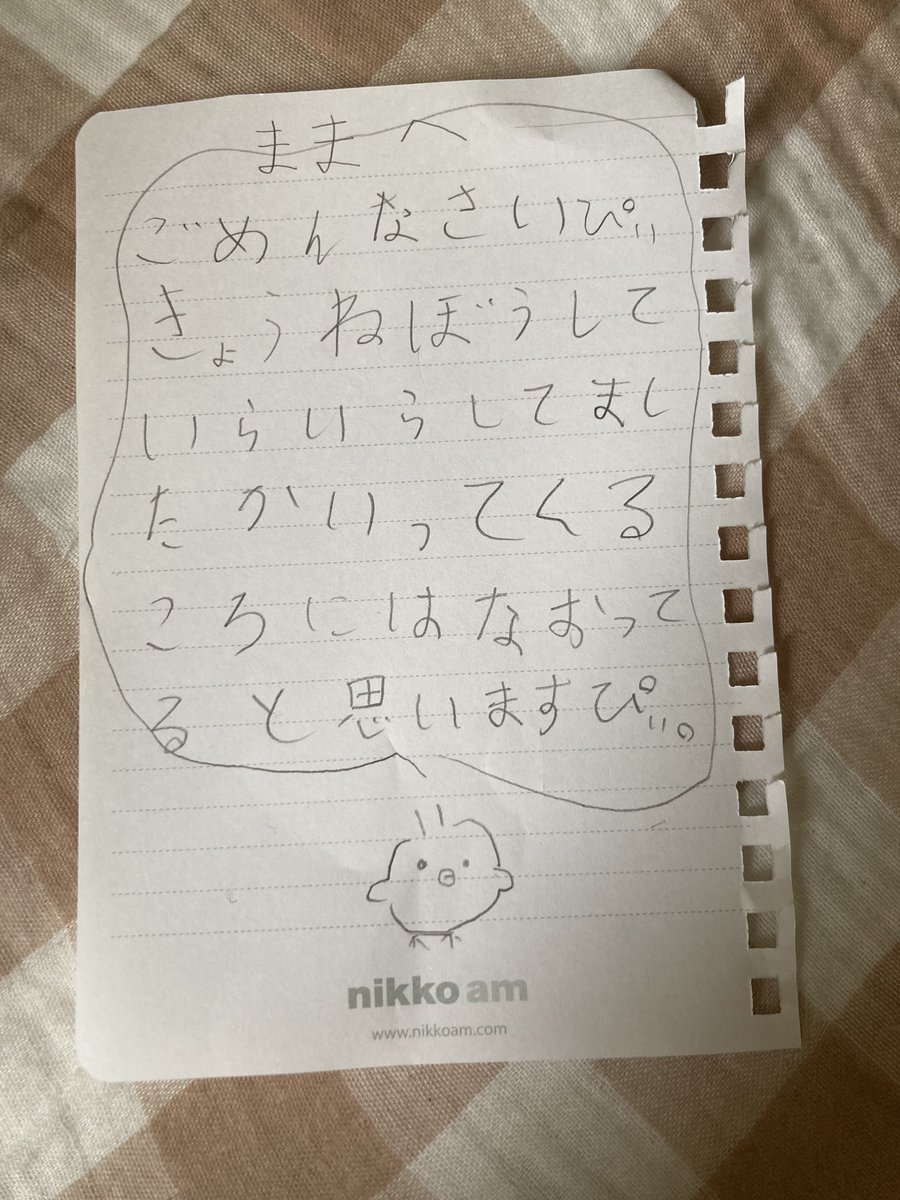 ままへ
ごめんなさいぴ
きょうねぼうして
いらいらしてまし
たかいってくる
ころにはなおって
ると思いますぴ。
nikko am
www.nikkoam.com